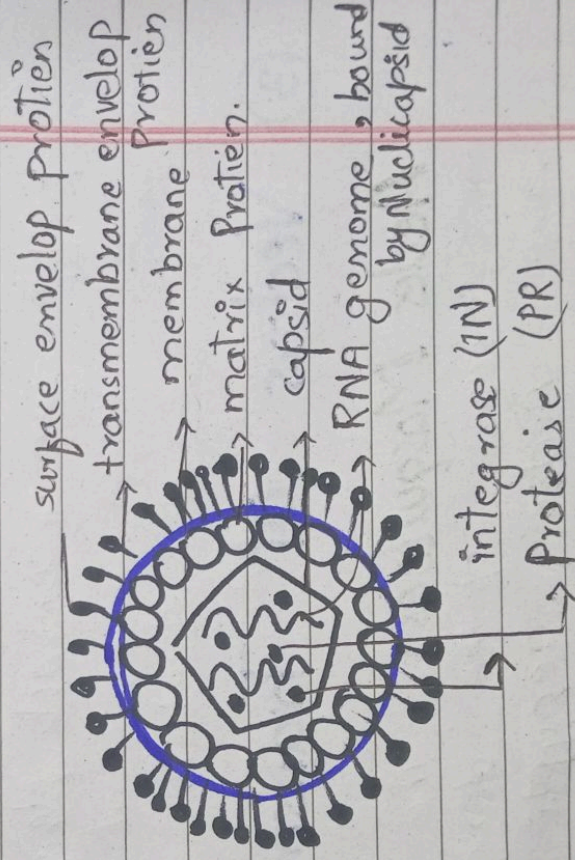 surface envelop protien
transmembrane envelop
Protien
membrane
matrix Protien.
capsid
RNA genome, bound
by Nuclicapsid
integrase (IN)
Protease (PR)